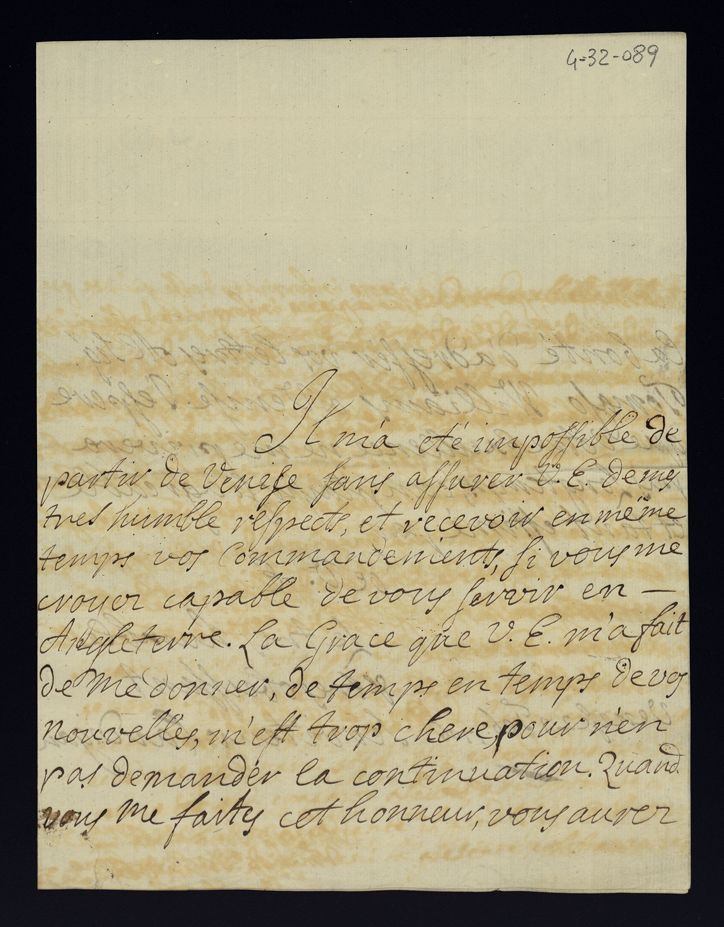 4-32-089
Il m'a eté impossible de
partir de Venise sans assurer V. E. de mes
tres humble respects, et recevoir en même
temps vos Commandements, si vous me
croyez capable de vous servir en —
Angleterre. La Grace que V. E. m'a fait
de me donner, de temps en temps de vos
nouvelles, m'est trop chere, pour n'en
pas demander la continuation. Quand
vous me faites cet honneur, vous aurez